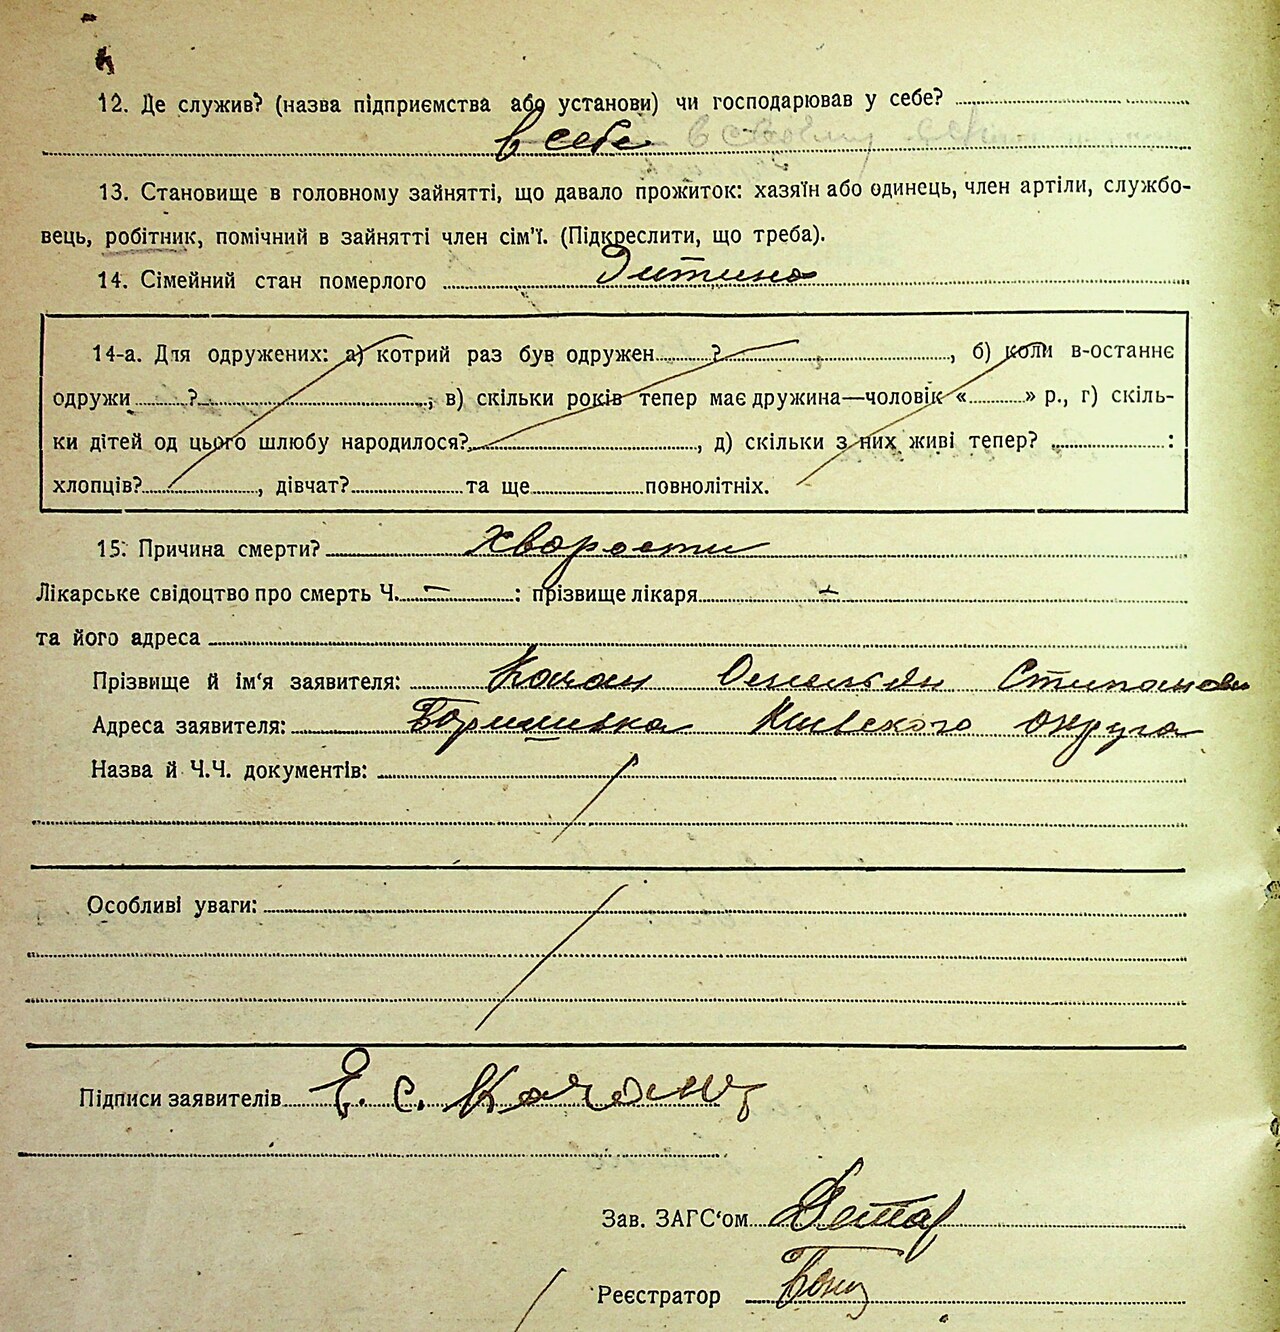 12. Де служив? (назва підприємства або установи) чи господарював у себе?
в себе
13. Становище в головному зайнятті, що давало прожиток: хазяїн або одинець, член артіли, службо-
вець, робітник, помічний в зайнятті член сім'ї. (Підкреслити, що треба).
14. Сімейний стан померлого Дитина
14-а. Для одружених: а) котрий раз був одружен ?, б) коли в-останнє
одружи ?; в) скільки років тепер має дружина—чоловік « » р., г) скіль-
ки дітей од цього шлюбу народилося?, д) скільки з них живі тепер? :
хлопців?, дівчат? та ще повнолітніх.
15. Причина смерти? Хворости
Лікарське свідоцтво про смерть Ч. – : прізвище лікаря –
та його адреса
Прізвище й ім'я заявителя: Качан
Адреса заявителя: Київского округа
Назва й Ч.Ч. документів:
Особливі уваги:
Підписи заявителів Е. С. Качанъ
Зав. ЗАГС'ом
Реєстратор